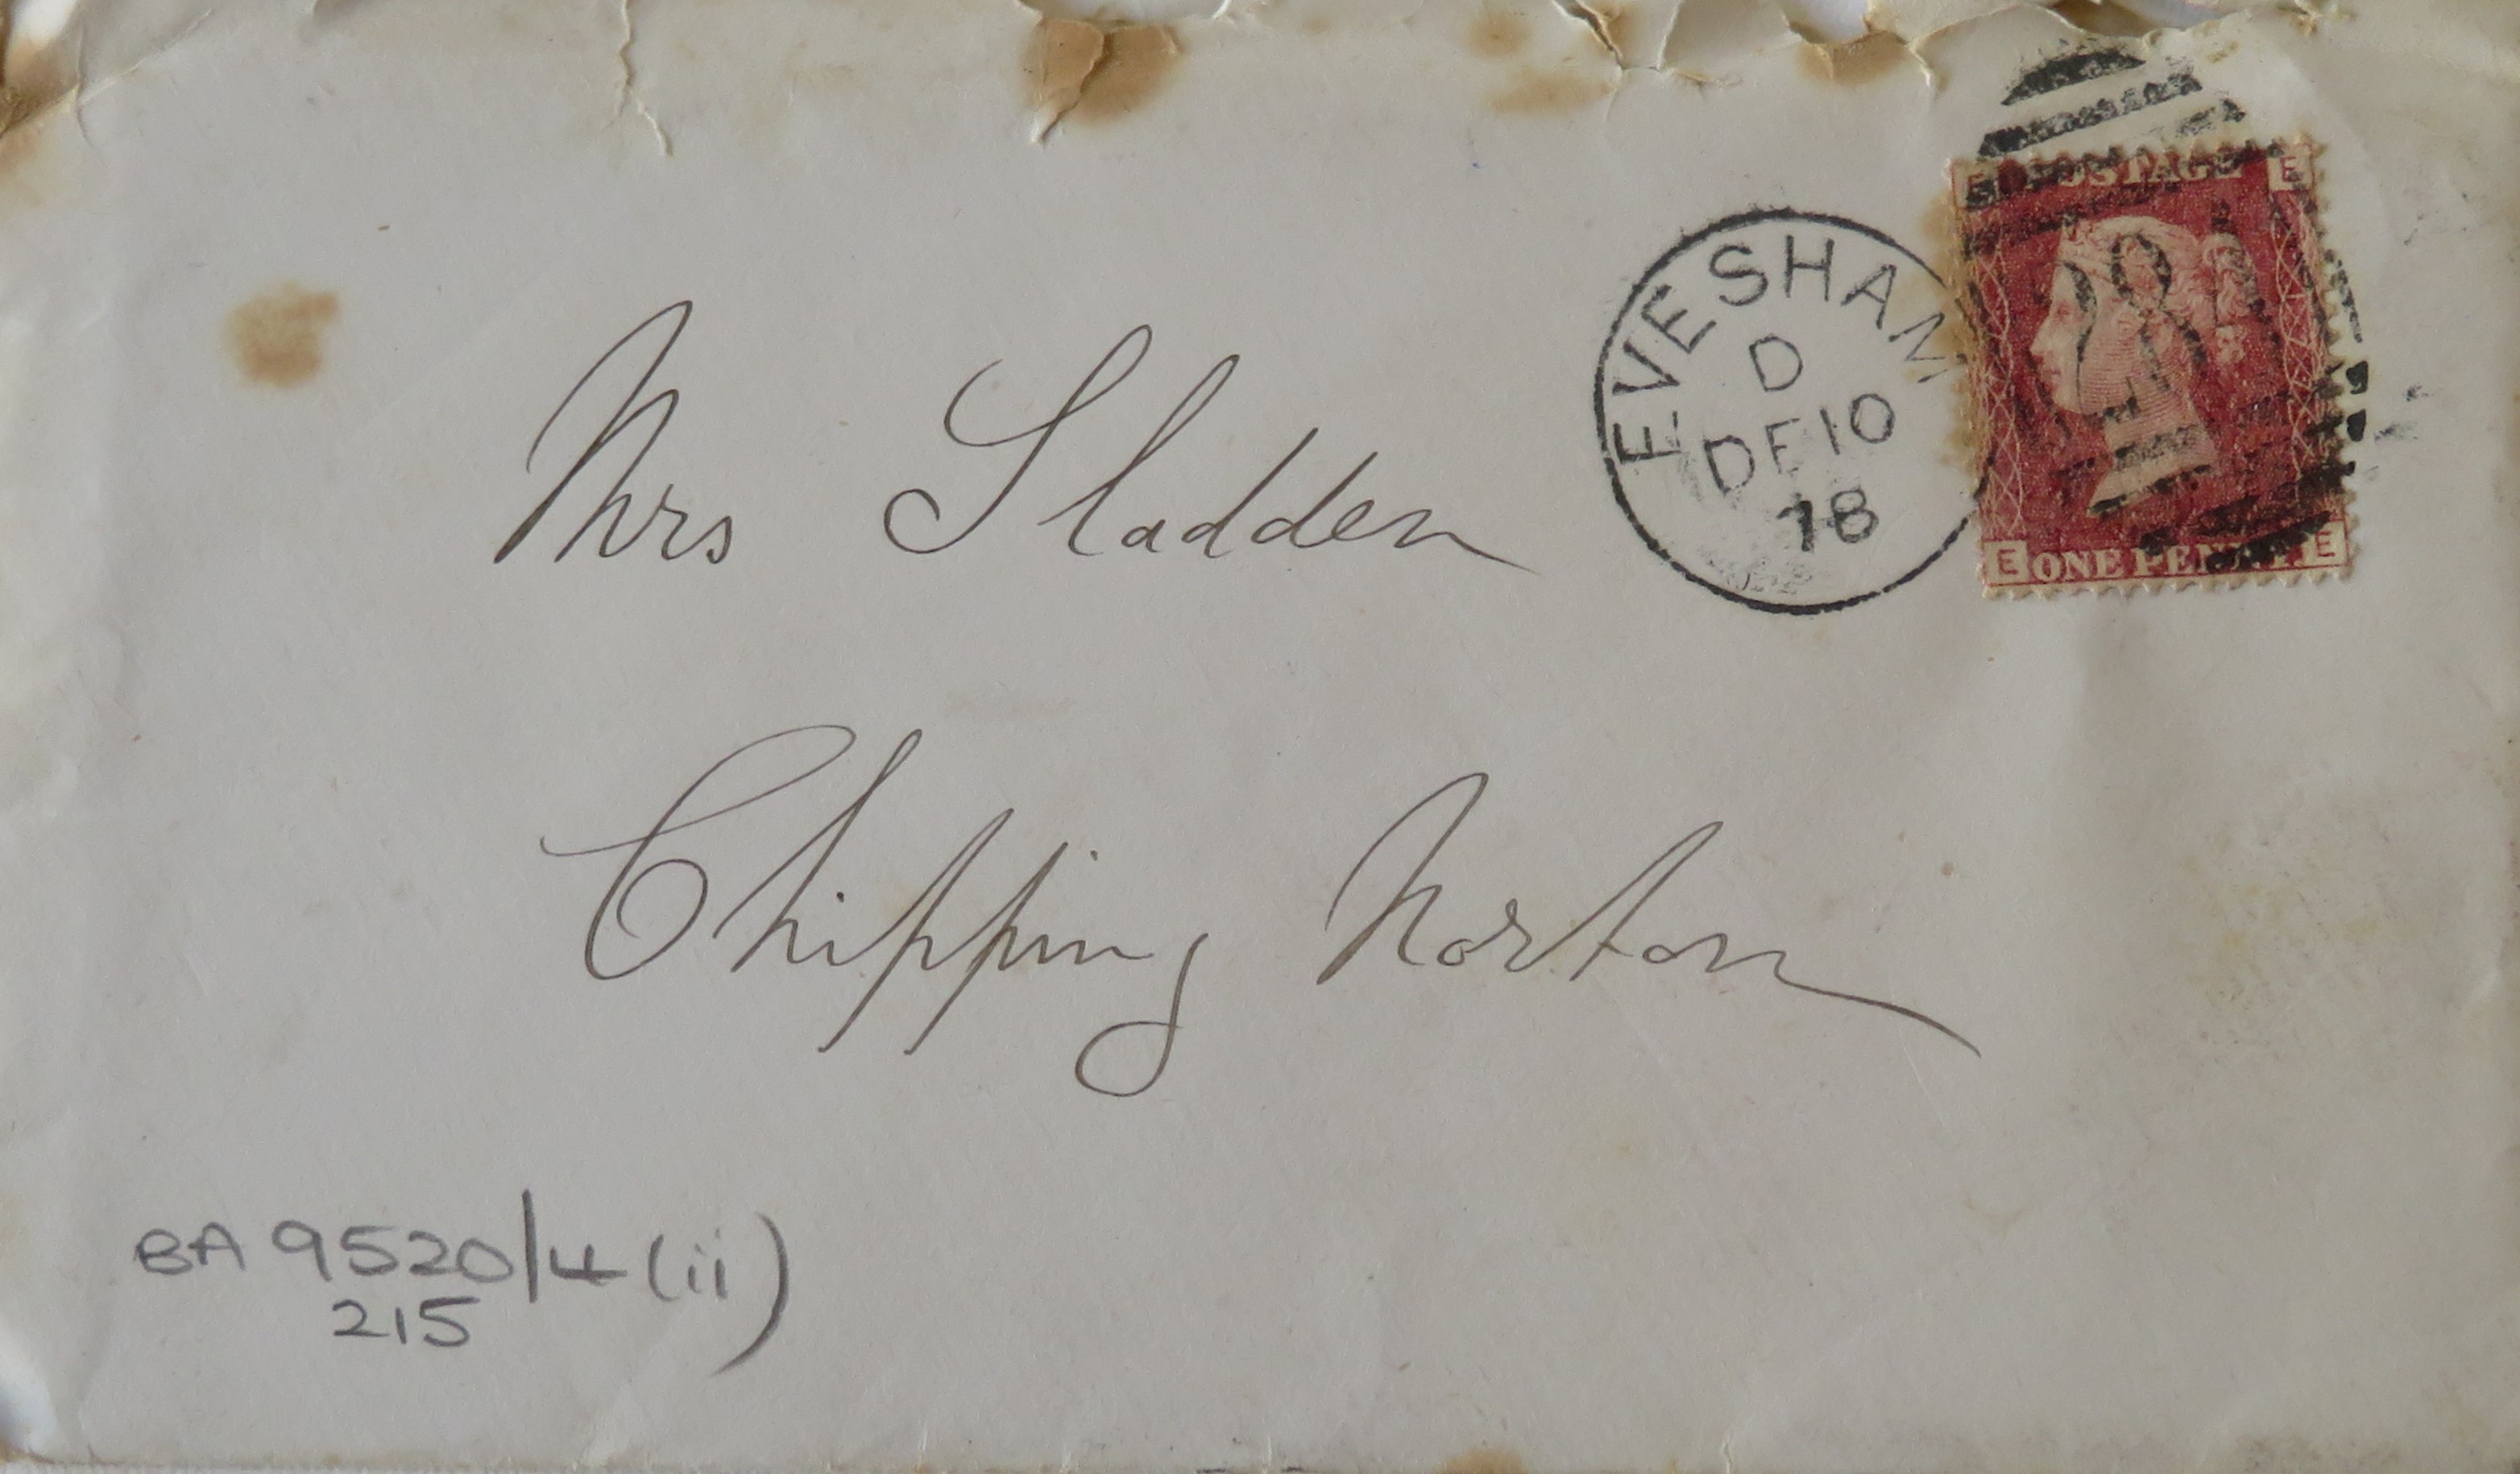 POSTAGE
E
EVESHAM
D
DE10
78
E ONE PENNY. E
Mrs Sladden
Chipping Norton
BA 9520/4 (ii)
215